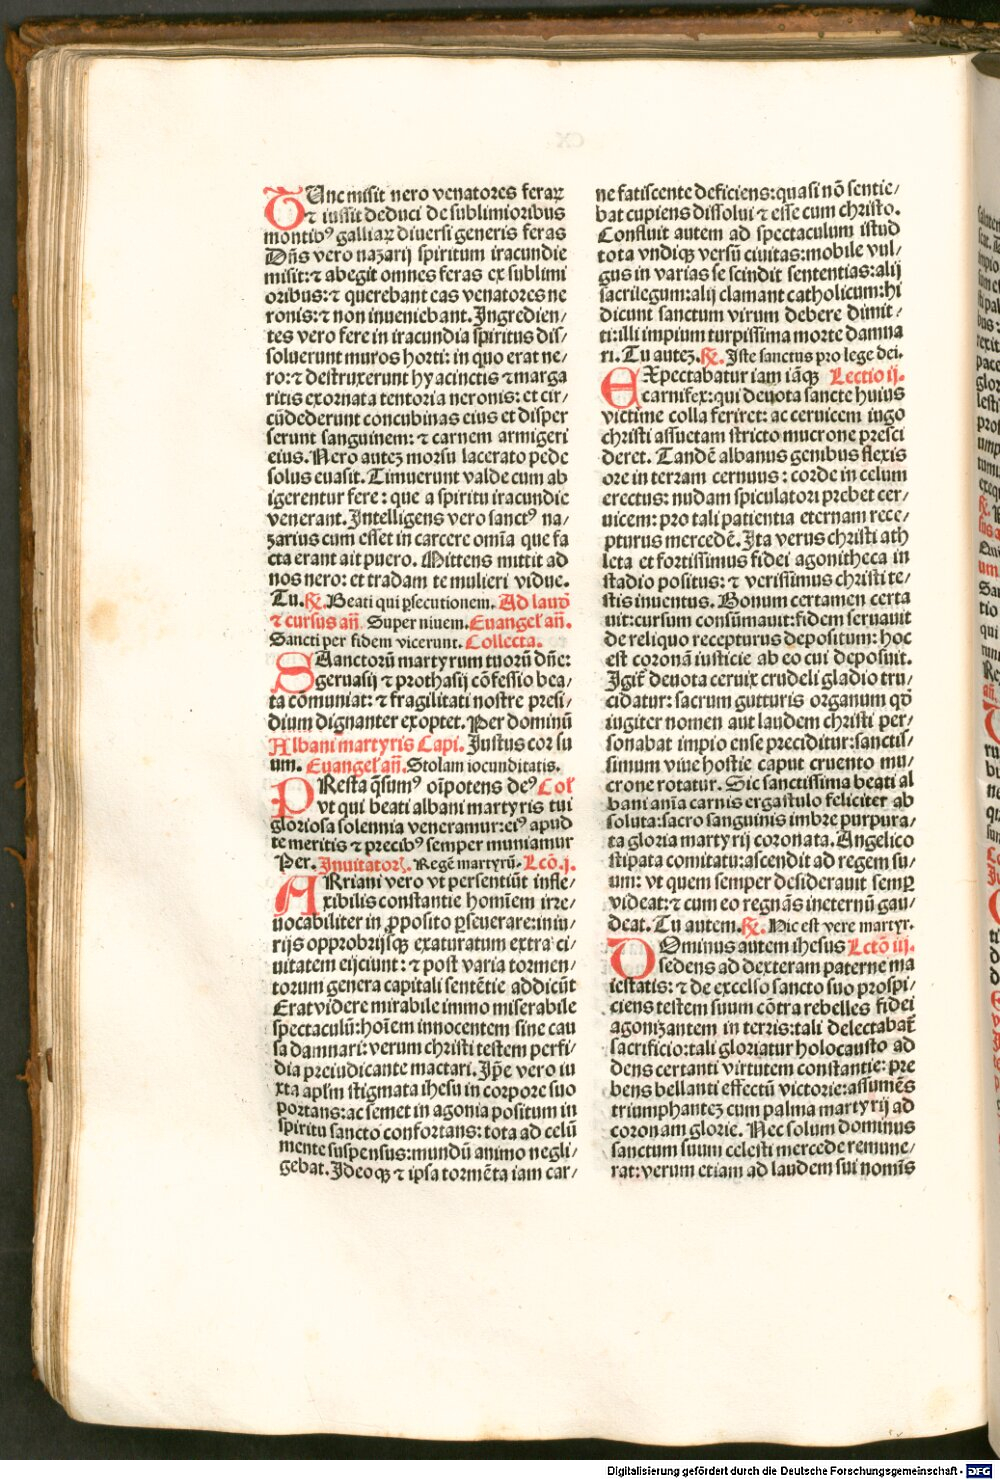 TUnc misit nero venatores feraꝝ
⁊ iussit deduci de sublimioribus
montibꝰ galliaꝝ diuersi generis feras
Dñs vero nazarij spiritum iracundie
misit: ⁊ abegit omnes feras ex sublimi
oribus: ⁊ querebant eas venatores ne
ronis: ⁊ non inueniebant. Ingredien⸗
tes vero fere in iracundia spiritus dis⸗
soluerunt muros horti: in quo erat ne⸗
ro: ⁊ destruxerunt hyacinctis ⁊ marga
ritis exornata tentoria neronis: et cir⸗
cūdederunt concubinas eius et disper
serunt sanguinem: ⁊ carnem armigeri
eius. Nero autez morsu lacerato pede
solus euasit. Timuerunt valde cum ab
igerentur fere: que a spiritu iracundie
venerant. Intelligens vero sanctꝰ na⸗
zarius cum esset in carcere omīa que fa
cta erant ait puero. Mittens mittit ad
nos nero: et tradam te mulieri vidue.
Tu. ℟. Beati qui ꝑsecutionem. Ad laud̄
⁊ cursus an̄. Super niuem. Euangeł an̄.
Sancti per fidem vicerunt. Collecta.
SAanctorū martyrum tuorū dn̄e:
geruasij ⁊ prothasij cōfessio bea⸗
ta cōmuniat: ⁊ fragilitati nostre presi⸗
dium dignanter exoptet. Per dominū
Albani martyris Capi. Justus cor su
um. Euangeł an̄. Stolam iocunditatis.
PResta q̄sumꝰ oīpotens deꝰ Coł
vt qui beati albani martyris tui
gloriosa solennia veneramur: eiꝰ apud
te meritis ⁊ precibꝰ semper muniamur
Per. Inuitator̄. Regē martyrū. Lcō. j.
ARriani vero vt persentiūt infle⸗
xibilis constantie homīem irre⸗
uocabiliter in ꝓposito ꝑseuerare: iniu⸗
rijs opprobrijsqꝫ exaturatum extra ci⸗
uitatem eijciunt: ⁊ post varia tormen⸗
torum genera capitali sentētie addicūt
Erat videre mirabile immo miserabile
spectaculū: hoīem innocentem sine cau
sa damnari: verum christi testem perfi⸗
dia preiudicante mactari. Ip̄e vero iu
xta apl'm stigmata ihesu in corpore suo
portans: ac semet in agonia positum in
spiritu sancto confortans: tota ad celū
mente suspensus: mundū animo negli⸗
gebat. Ideoqꝫ ⁊ ipsa tormēta iam car⸗
ne fatiscente deficiens: quasi nō sentie⸗
bat cupiens dissolui ⁊ esse cum christo.
Confluit autem ad spectaculum istud
tota vndiqꝫ versū ciuitas: mobile vul⸗
gus in varias se scindit sententias: alij
sacrilegum: alij clamant catholicum: hi
dicunt sanctum virum debere dimit⸗
ti: illi impium turpissima morte damna
ri. Tu autez. ℟. Iste sanctus pro lege dei.
EXpectabatur iam iāqꝫ Lectio ij.
carnifex: qui deuota sancte huius
victime colla feriret: ac ceruicem iugo
christi assuetam stricto mucrone presci
deret. Tandē albanus genibus flexis
ore in terram cernuus: corde in celum
erectus: nudam spiculatori prebet cer⸗
uicem: pro tali patientia eternam rece⸗
pturus mercedē. Ita verus christi ath
leta et fortissimus fidei agonitheca in
stadio positus: ⁊ verissimus christi te⸗
stis inuentus. Bonum certamen certa
uit: cursum consūmauit: fidem seruauit
de reliquo recepturus depositum: hoc
est coronā iusticie ab eo cui deposuit.
Igit̄ deuota ceruix crudeli gladio tru⸗
cidatur: sacrum gutturis organum qd̄
iugiter nomen aut laudem christi per⸗
sonabat impio ense preciditur: sanctis⸗
simum viue hostie caput cruento mu⸗
crone rotatur. Sic sanctissima beati al
bani anīa carnis ergastulo feliciter ab
soluta: sacro sanguinis imbre purpura⸗
ta gloria martyrij coronata. Angelico
stipata comitatu: ascendit ad regem su⸗
um: vt quem semper desiderauit semꝑ
videat: ⁊ cum eo regnās ineternū gau⸗
deat. Tu autem. ℟. Hic est vere martyr.
DOminus autem ihesus Lectō iij.
sedens ad dexteram paterne ma
iestatis: ⁊ de excelso sancto suo prospi⸗
ciens testem suum cōtra rebelles fidei
agonizantem in terris: tali delectabat̄
sacrificio: tali gloriatur holocausto ad
dens certanti virtutem constantie: pre
bens bellanti effectū victorie: assumēs
triumphantez cum palma martyrij ad
coronam glorie. Nec solum dominus
sanctum suum celesti mercede remune⸗
rat: verum etiam ad laudem sui nomīs
Digitalisierung gefördert durch die Deutsche Forschungsgemeinschaft - DFG